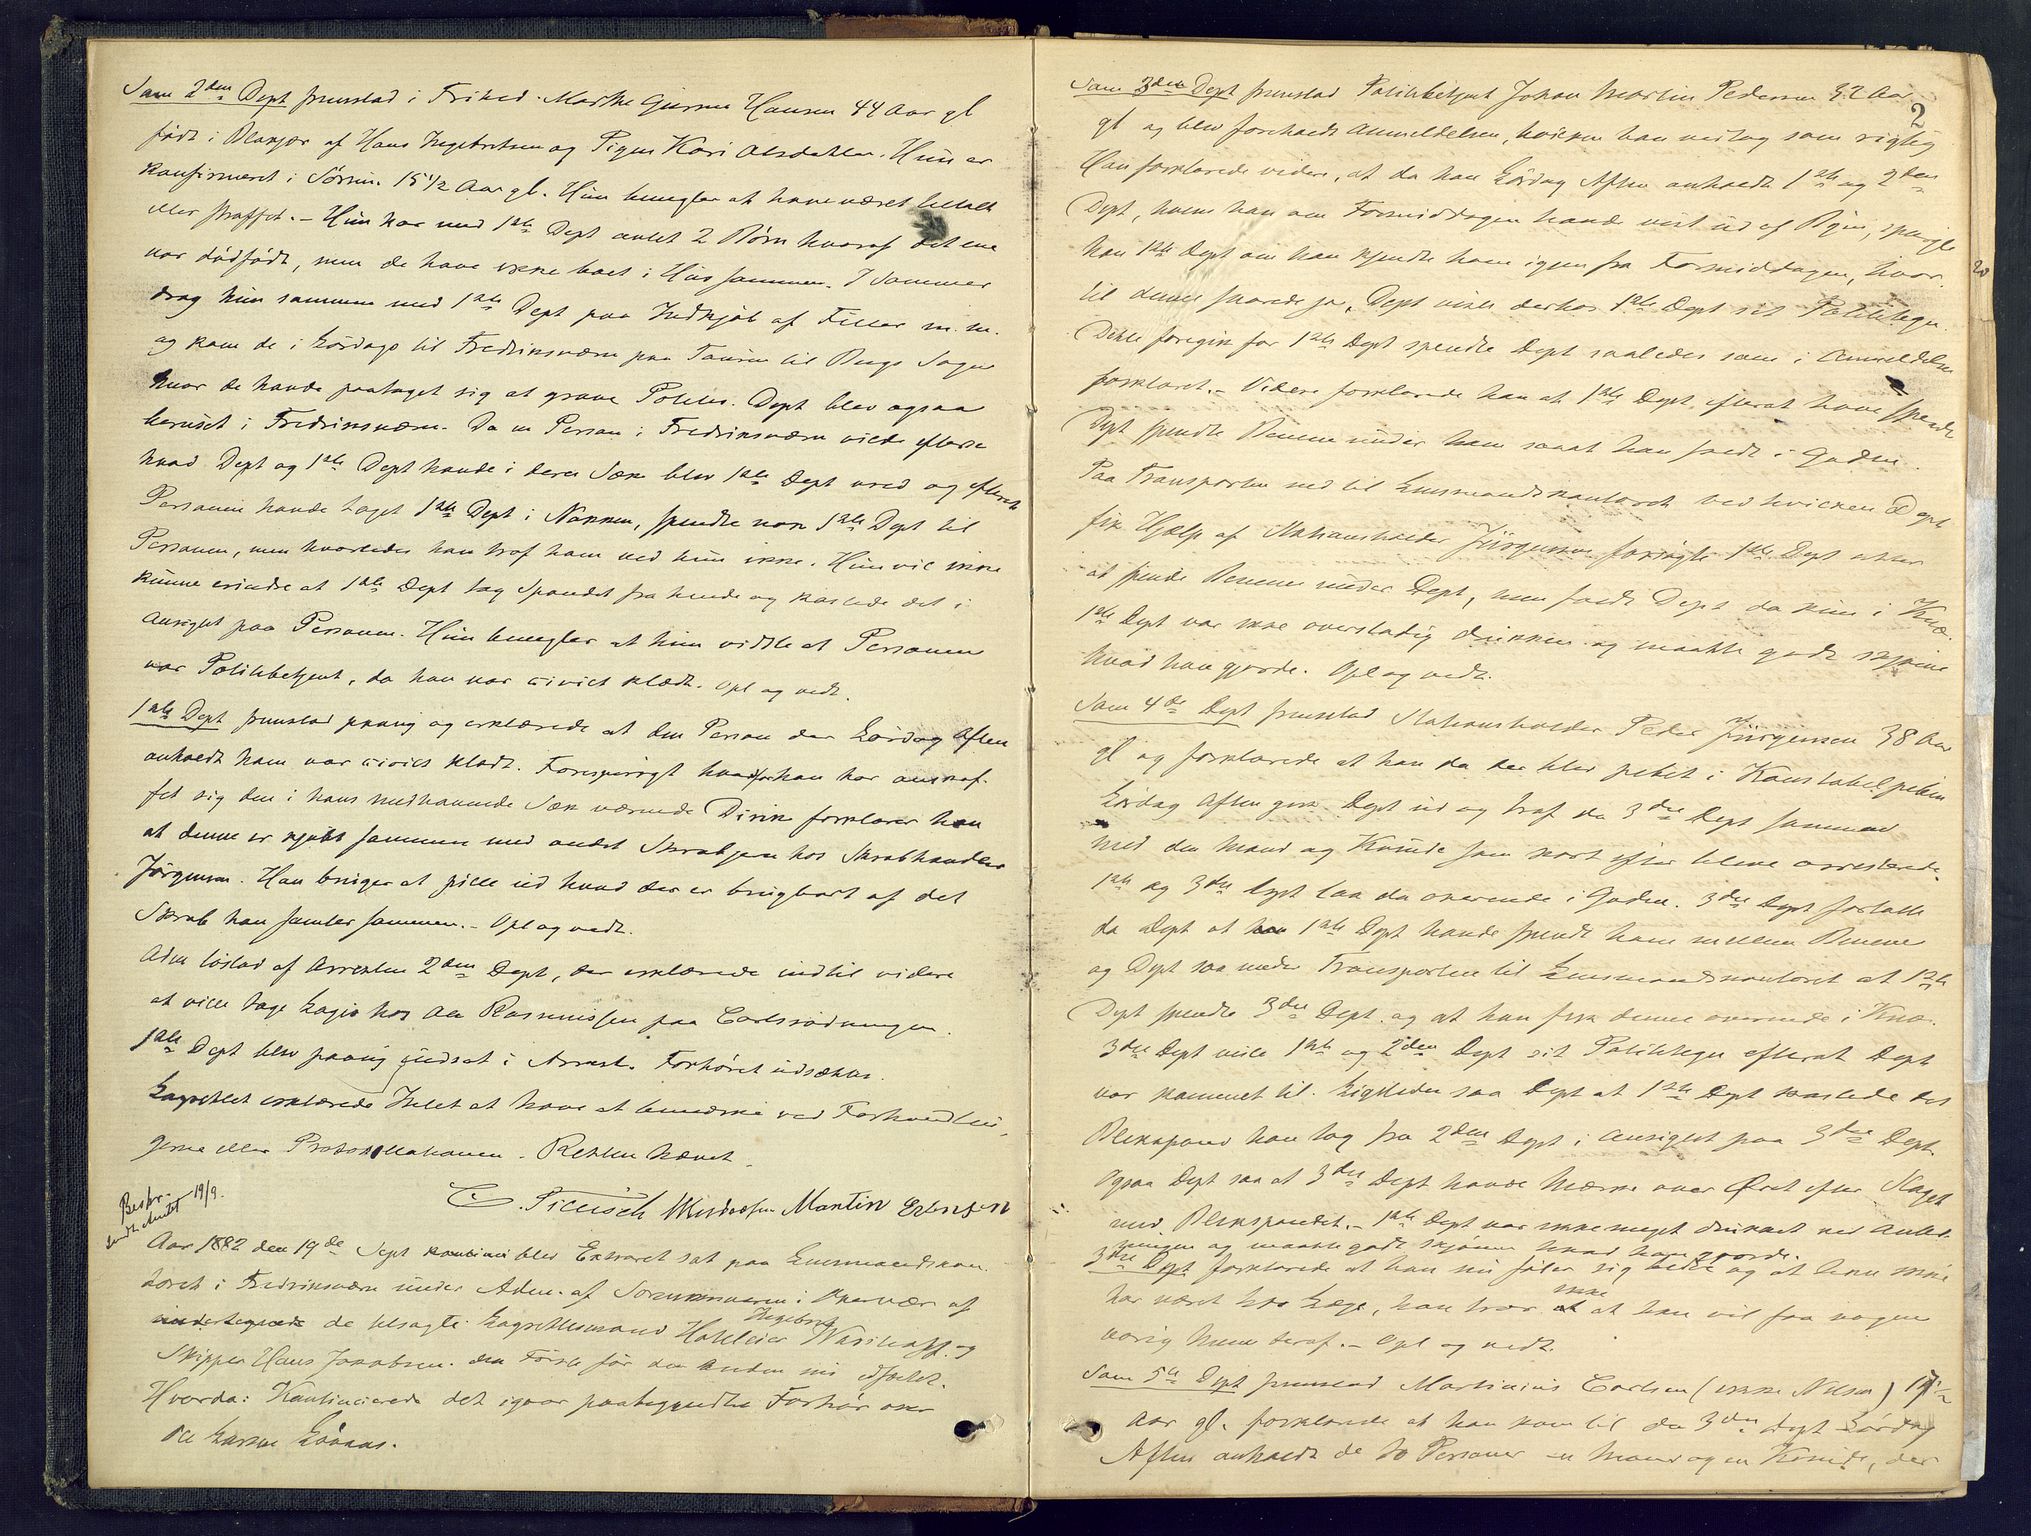 Som 2den Dept fremstod i Frihed Marthe Gurine Hansen 44 Aar gl
født i Blakjær af Hans Ingebretsen og Pigen Kari Olsdatter. Hun er
konfirmeret i Sørum 15 1/2 Aar gl. Hun benegter at have været tiltalt
eller straffet. - Hun har med 1ste Dept avlet 2 Børn hvoraf det ene
var dødfødt, men de have ikke boet i Hus sammen. I Sommer
drog hun sammen med 1ste Dept paa Indkjøb af Filler m. m.
og kom de i Lørdags til Fredriksværn paa Touren til Bergs Sogn
hvor de havde paataget sig at grave Poteter. Dept blev ogsaa
beruset i Fredriksværn. Da en Person i Fredriksværn vilde efterse
hvad Dept og 1ste Dept havde i deres Sæk blev 1ste Dept vred og efterat
Personen havde taget 1ste Dept i Nakken, spendte nok 1ste Dept til
Personen, men hvorledes han traf ham ved hun ikke. Hun vil ikke
kunne erindre at 1ste Dept tog Spandet fra hende og kastede det i
Ansigtet paa Personen. Hun benegter at hun vidste at Personen
var Politibetjent, da han var civilt klædt. Opl og vedt.
1ste Dept fremstod paany og erklærede at den Person der Lørdag Aften
anholdt ham var civilt klædt. Foresspurgt hvorfor han har anskaf-
fet sig den i hans medhavende Sæk værende Dirk forklarer han
at denne er kjøbt sammen med andet Skrabjern hos Skrabhandler
Jørgensen. Han bruger at pille ud hvad der er brugbart af det
Skrab han samler sammen. - Opl og vedt.
Adm løslod af Arresten 2den Dept, der erklærede indtil videre
at ville tage Logis hos Ole Rasmussen paa Carlsrødningen.
1ste Dept blev paany indsat i Arrest. Forhøret udsættes.
Lagrettet erklærede Intet at have at bemærke ved Forhandlin-
gerne eller Protokollationen. Retten hævet.
Martin Evensen
Beskr. 19/9.
sendt Amtet
Aar 1882 den 19de Sept kontinui blev Extraret sat paa Lensmandskon-
toret i Fredriksværn under Adm. af Sorenskriveren i Overvær af
undertegnede de tilsagte Lagrettesmænd Hotteleier Ingebret og
Skipper Hans Jakobsen. den Første før den Anden nu edfæstet.
Hvorda: Kontinuerede det igaar paabegyndte Forhør over
Ole Larsen
2
Som 3die Dept fremstod Politibetjent Johan Martin Pedersen 32 Aar
gl og blev foreholdt Anmeldelsen, hvilken han vedtog som rigtig
Han forklarede videre, at da han Lørdag Aften anholdt 1ste og 2den
Dept, hvem han om Formiddagen havde vist ud af Byen, spurgte
han 1ste Dept om han kjendte ham igjen fra Formiddagen, hvor-
til denne svarede ja, Dept viste derhos 1ste Dept sit Polititegn.
Dette foregik før 1ste Dept spendte Dept saaledes som i Anmeldelsen
forklaret. - Videre forklarede han at 1ste Dept, efterat have spendt
Dept spendte Benene under ham saaat han faldt i Gaden.
Paa Transporten ned til Lensmandskontoret ved hvilken Dept
fik Hjælp af Stationsholder Jürgensen forsøgte 1ste Dept atter
at spende Benene under Dept, men faldt Dept da kun i Knæ.
1ste Dept var ikke overstadig drukken og maatte godt skjønne
hvad han gjorde. Opl og vedt.
Som 4de Dept fremstod Stationsholder Peder Jürgensen 38 Aar
gl og forklarede at han da der blev pebet i Konstabelpiben
Lørdag Aften gik Dept ud og traf da 3die Dept sammen
med den Mand og Kvinde som kort efter bleve arresterede.
1ste og 3die Dept laa da overende i Gaden. 3die Dept fortalte
da Dept at 1ste Dept havde spendt ham mellem Benene
og Dept saa under Transporten til Lensmandskontoret at 1ste
Dept spendte 3die Dept og at han fik denne overende i Knæ.
3die Dept viste 1ste og 2den Dept sit Politi tegn efterat Dept
var kommet til. Ligeledes saa Dept at 1ste Dept kastede det
Blikspand han tog fra 2den Dept i Ansigtet paa 3die Dept.
Ogsaa Dept saa at 3die Dept havde Mærke over Øret efter Slaget
med Blikspandet. - 1ste Dept var ikke meget drukket ved Anled-
ningen og maatte godt skjønne hvad han gjorde.
3die Dept forklarede at han nu føler sig bedre og at han ikke
har været hos Læge, han tror ikke at han vil faa nogen
varig Men deraf. - Opl og vedt.
Som 5te Dept fremstod Martinius Carlsen (ikke Nilsen) 17 1/2
Aar gl. forklarede at han kom til da 3die Dept Lørdag
Aften anholdt de to Personer en Mand og en Kvinde, der